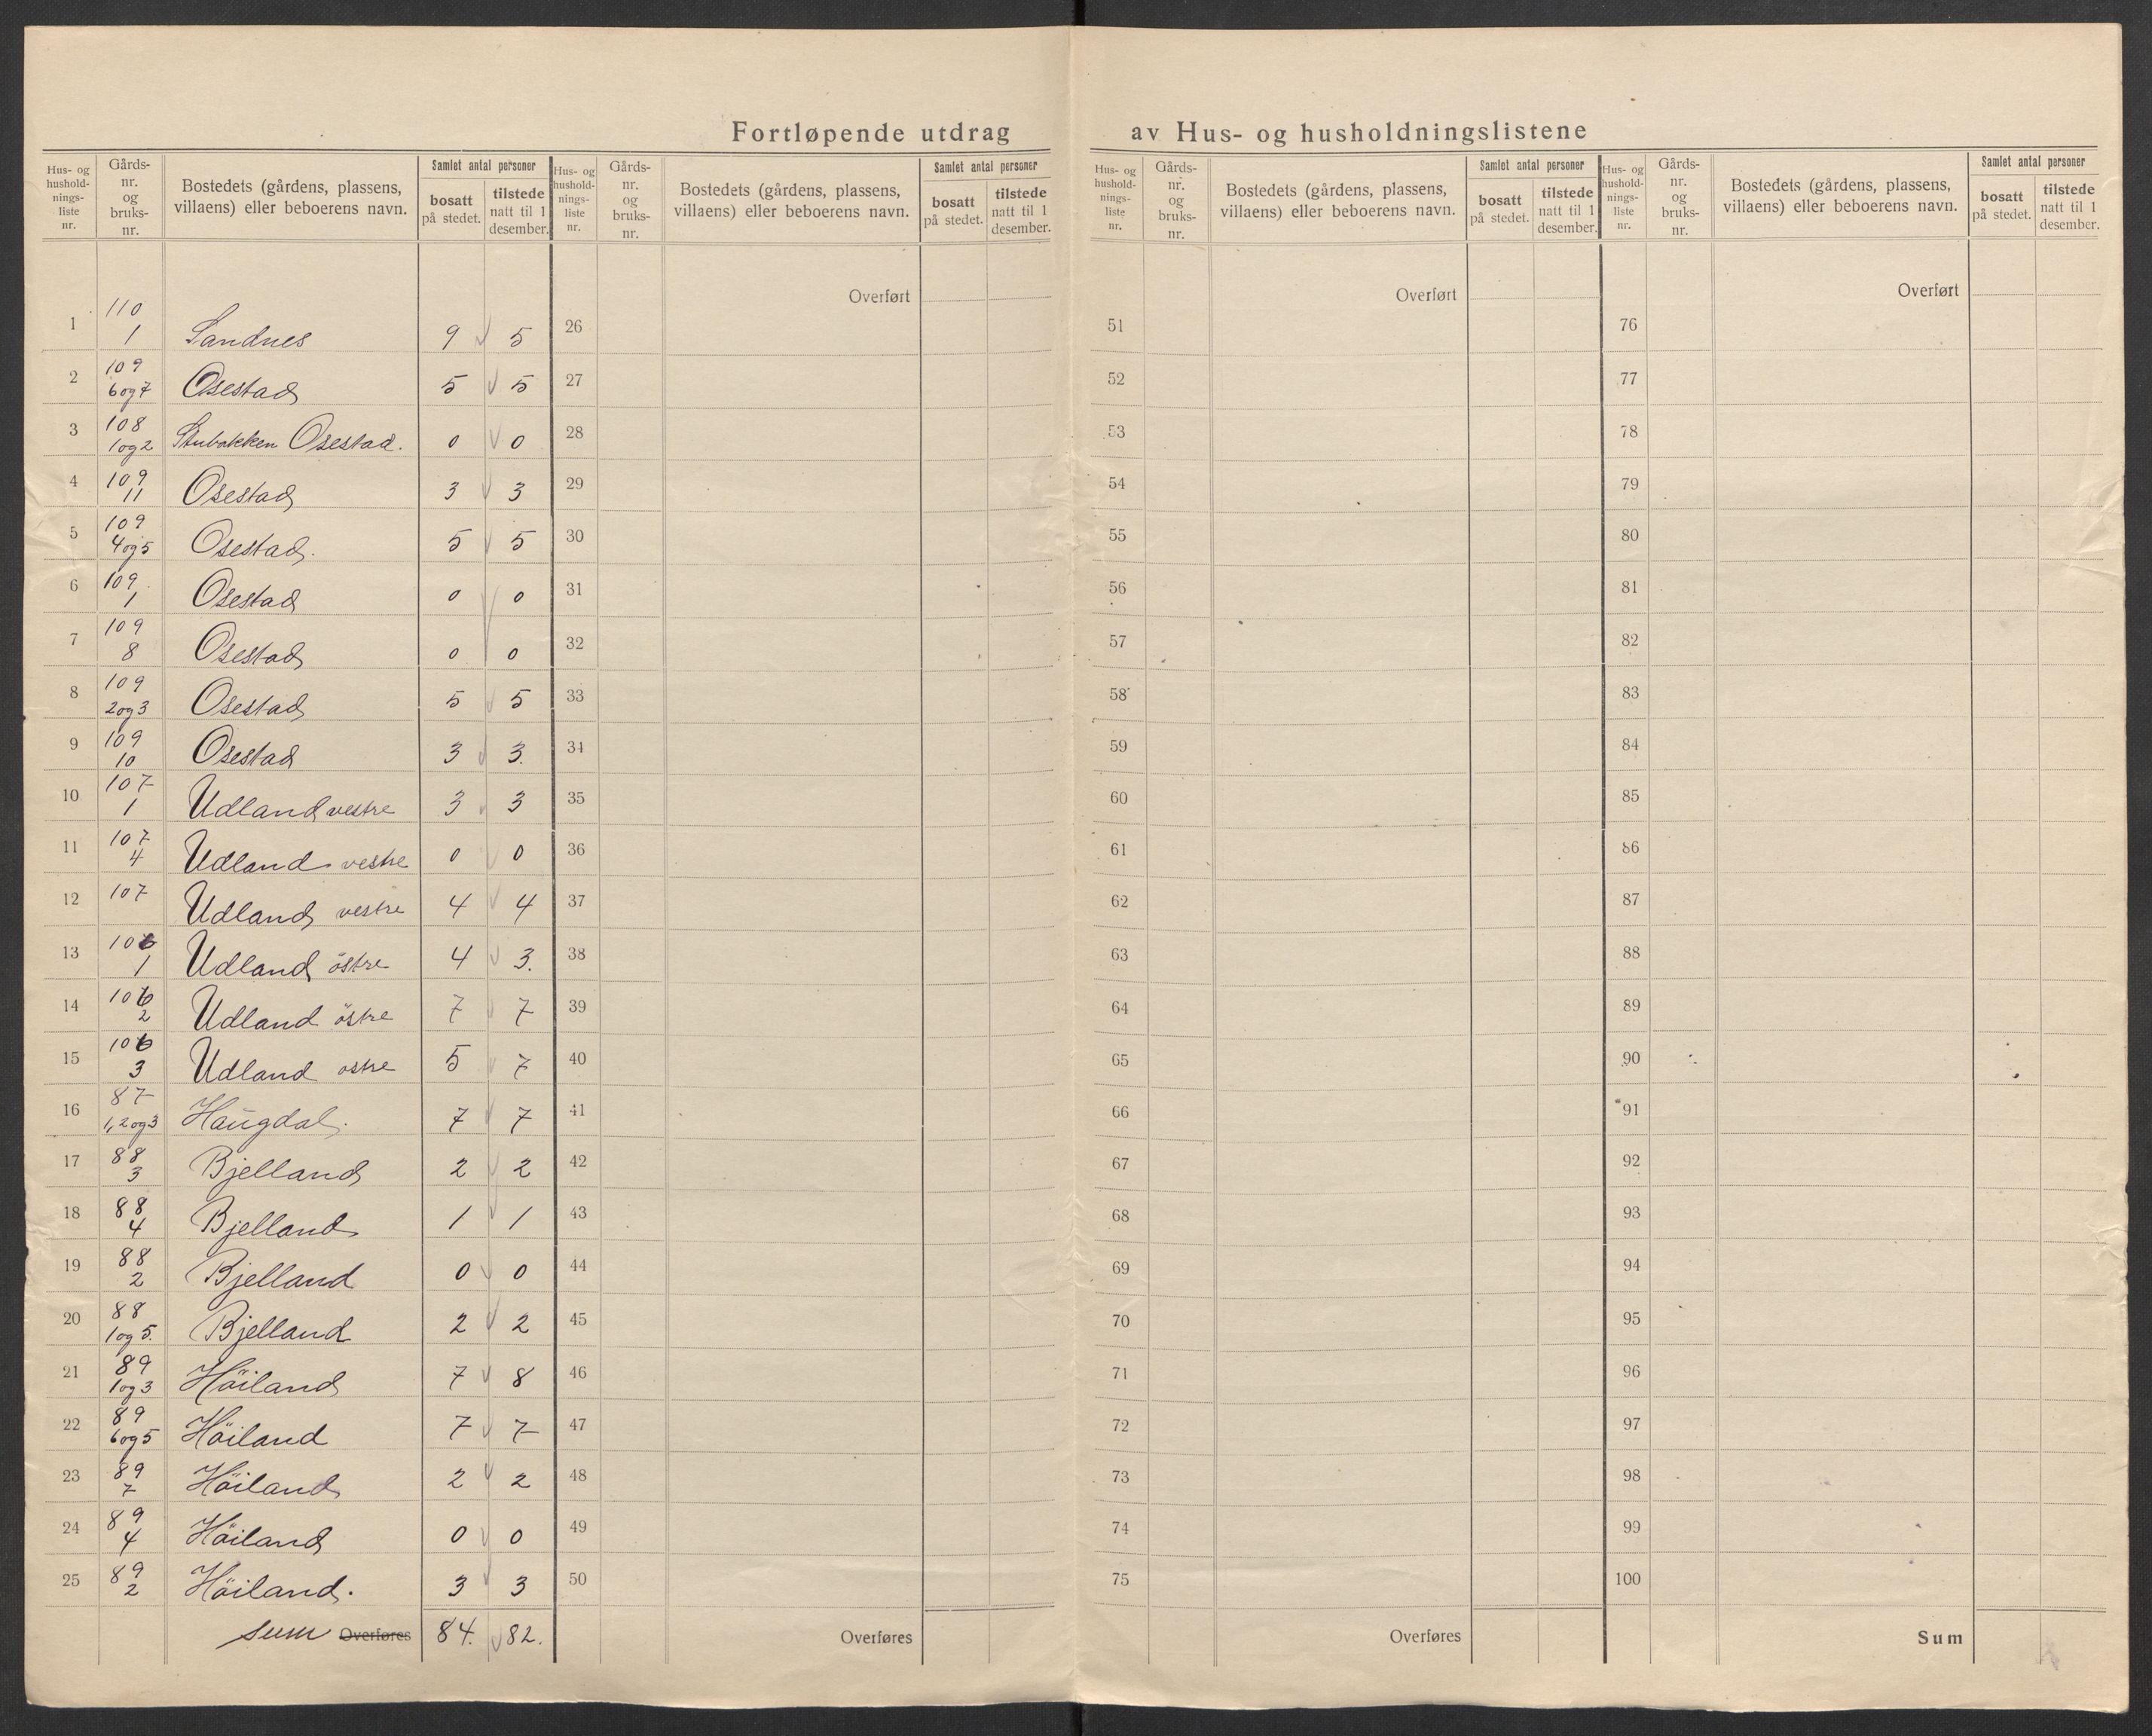 Fortløpende utdrag av Hus- og husholdningslistene
Hus- og hushold-nings-liste nr. Gårds-nr. og bruks-nr. Bostedets (gårdens, plassens, villaens) eller beboerens navn. Samlet antal personer bosatt på stedet. tilstede natt til 1 desember.
Hus- og hushold-nings-liste nr. Gårds-nr. og bruks-nr. Bostedets (gårdens, plassens, villaens) eller beboerens navn. Samlet antal personer bosatt på stedet. tilstede natt til 1 desember.
Hus- og hushold-nings-liste nr. Gårds-nr. og bruks-nr. Bostedets (gårdens, plassens, villaens) eller beboerens navn. Samlet antal personer bosatt på stedet. tilstede natt til 1 desember.
Hus- og hushold-nings-liste nr. Gårds-nr. og bruks-nr. Bostedets (gårdens, plassens, villaens) eller beboerens navn. Samlet antal personer bosatt på stedet. tilstede natt til 1 desember.
Overført Overført Overført
1 110 1 Sandnes 9 5 26 51 76
2 109 6 og 7 Osestad 5 5 27 52 77
3 108 1 og 2 Stubakken Osestad. 0 0 28 53 78
4 109 11 Osestad 3 3 29 54 79
5 109 4 og 5 Osestad. 5 5 30 55 80
6 109 1 Osestad 0 0 31 56 81
7 109 8 Osestad 0 0 32 57 82
8 109 2 og 3 Osestad 5 5 33 58 83
9 109 10 Osestad 3 3. 34 59 84
10 107 1 Udland vestre 3 3 35 60 85
11 107 4 Udland vestre 0 0 36 61 86
12 107 Udland vestre 4 4 37 62 87
13 106 1 Udland östre 4 3. 38 63 88
14 106 2 Udland östre 7 7 39 64 89
15 106 3 Udland ostre 5 7 40 65 90
16 87 1, 2 og 3 Haugdal. 7 7 41 66 91
17 88 3 Bjelland 2 2 42 67 92
18 88 4 Bjelland 1 1 43 68 93
19 88 2 Bjelland 0 0 44 69 94
20 88 1 og 5. Bjelland 2 2 45 70 95
21 89 1 og 3 Höiland 7 8 46 71 96
22 89 6 og 5 Höiland 7 7 47 72 97
23 89 7 Höiland 2 2 48 73 98
24 89 4 Höiland 0 0 49 74 99
25 89 2 Höiland. 3 3 50 75 100
sum Overføres 84. 82. Overføres Overføres Sum